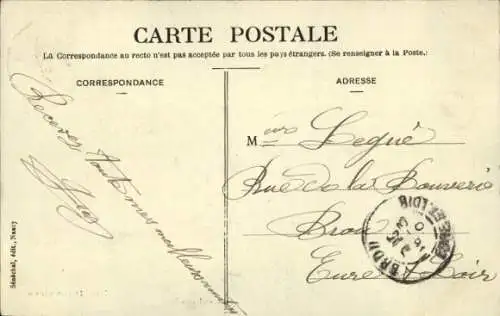 CARTE POSTALE
La Correspondance au recto n'est pas acceptée par tous les pays étrangers. (Se renseigner à la Poste.)
CORRESPONDANCE
Recevez tout mes meilleurs
ADRESSE
Mrs Legué
Rue de la Bouverie
Brou
Eure et Loir
BROU
EURE-ET-LOIR
Sénéchal, édit., Nancy